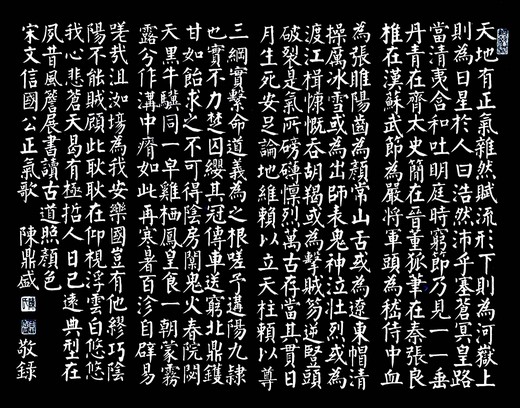 天地有正氣雜然賦流形下則為河嶽上
則為日星於人曰浩然沛乎塞蒼冥皇路
當清夷含和吐明庭時窮節乃見一一垂
丹青在齊太史簡在晉董狐筆在秦張良
椎在漢蘇武節為嚴將軍頭為嵇侍中血
為張睢陽齒為顏常山舌或為遼東帽清
操厲冰雪或為出師表鬼神泣壯烈或為
渡江楫慷慨吞胡羯或為擊賊笏逆豎頭
破裂是氣所磅礡凜烈萬古存當其貫日
月生死安足論地維賴以立天柱賴以尊
三綱實繫命道義為之根嗟予遘陽九隸
也實不力楚囚纓其冠傳車送窮北鼎鑊
甘如飴求之不可得陰房闃鬼火春院閟
天黑牛驥同一皁雞栖鳳皇食一朝蒙霧
露分作溝中瘠如此再寒暑百沴自辟易
嗟哉沮洳場為我安樂國豈有他繆巧陰
陽不能賊顧此耿耿在仰視浮雲白悠悠
我心悲蒼天曷有極哲人日已遠典型在
夙昔風簷展書讀古道照顏色
宋文信國公正氣歌 陳鼎盛 敬錄